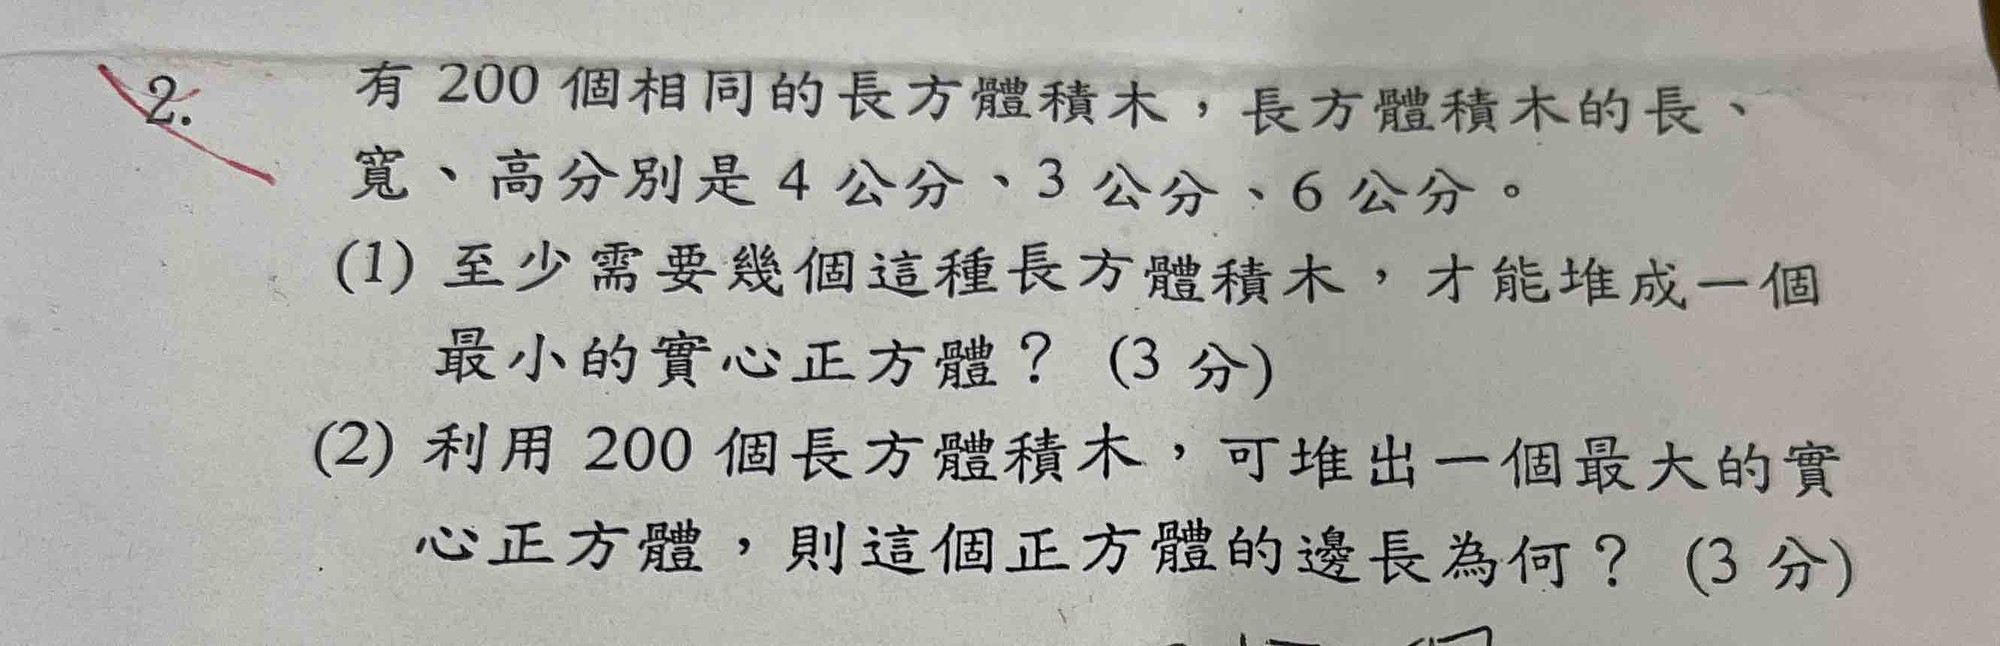 2. 有 200 個相同的長方體積木，長方體積木的長、
寬、高分別是 4 公分、3 公分、6 公分。
(1) 至少需要幾個這種長方體積木，才能堆成一個
最小的實心正方體？ (3 分)
(2) 利用 200 個長方體積木，可堆出一個最大的實
心正方體，則這個正方體的邊長為何？ (3 分)